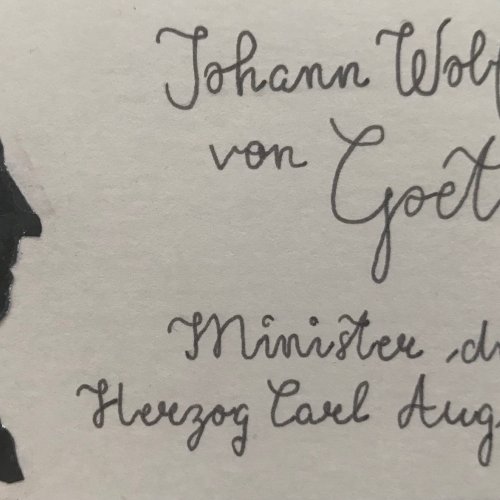 Johann Wolf
von Goet
Minister d
Herzog Carl Aug